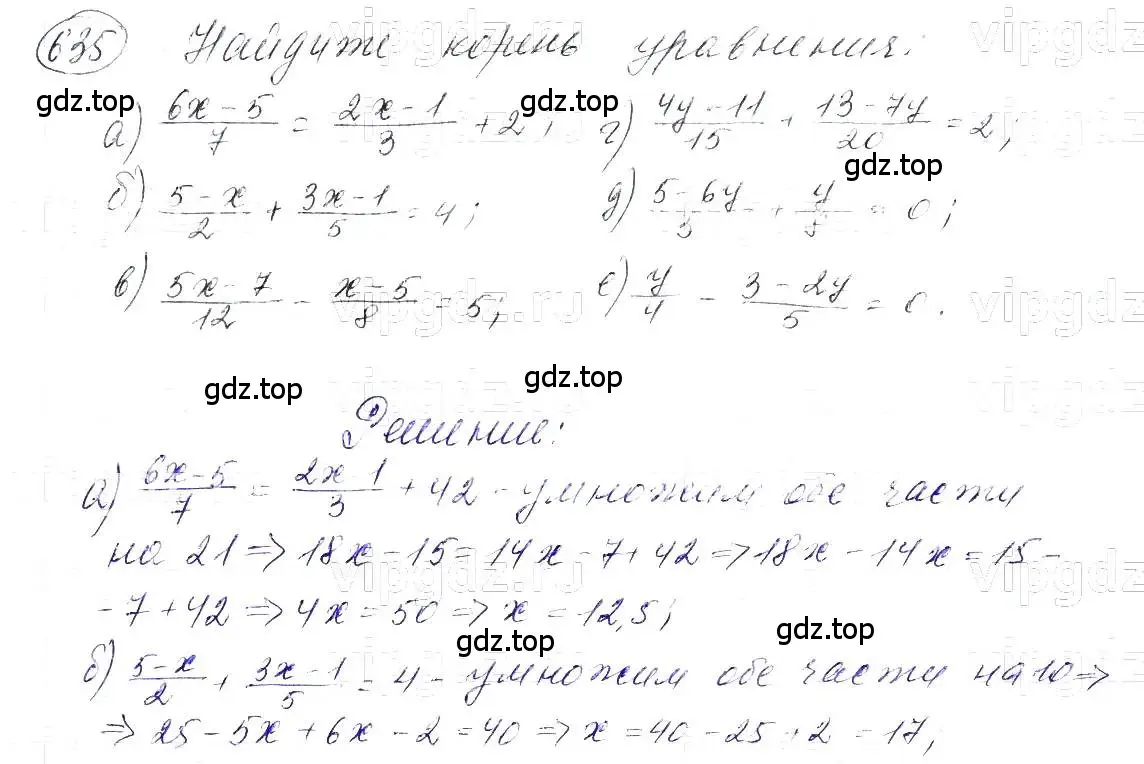 635 Найдите корень уравнения:
а) (6x-5)/7 = (2x-1)/3 + 2; г) (4y-11)/15 + (13-7y)/20 = 2;
б) (5-x)/2 + (3x-1)/5 = 4; д) (5-6y)/3 + y/8 = 0;
в) (5x-7)/12 - (x-5)/8 = 5; е) y/4 - (3-2y)/5 = 0.
Решение:
а) (6x-5)/7 = (2x-1)/3 + 42 - умножим обе части
на 21 => 18x-15=14x-7+42 => 18x-14x=15-
-7+42 => 4x=50 => x=12,5;
б) (5-x)/2 + (3x-1)/5 = 4 - умножим обе части на 10 =>
=> 25-5x+6x-2=40 => x=40-25+2=17;
gdz.top
gdz.top
gdz.top
gdz.top
gdz.top
gdz.top
gdz.top
vipgdz
vipgdz.ru
vipgdz